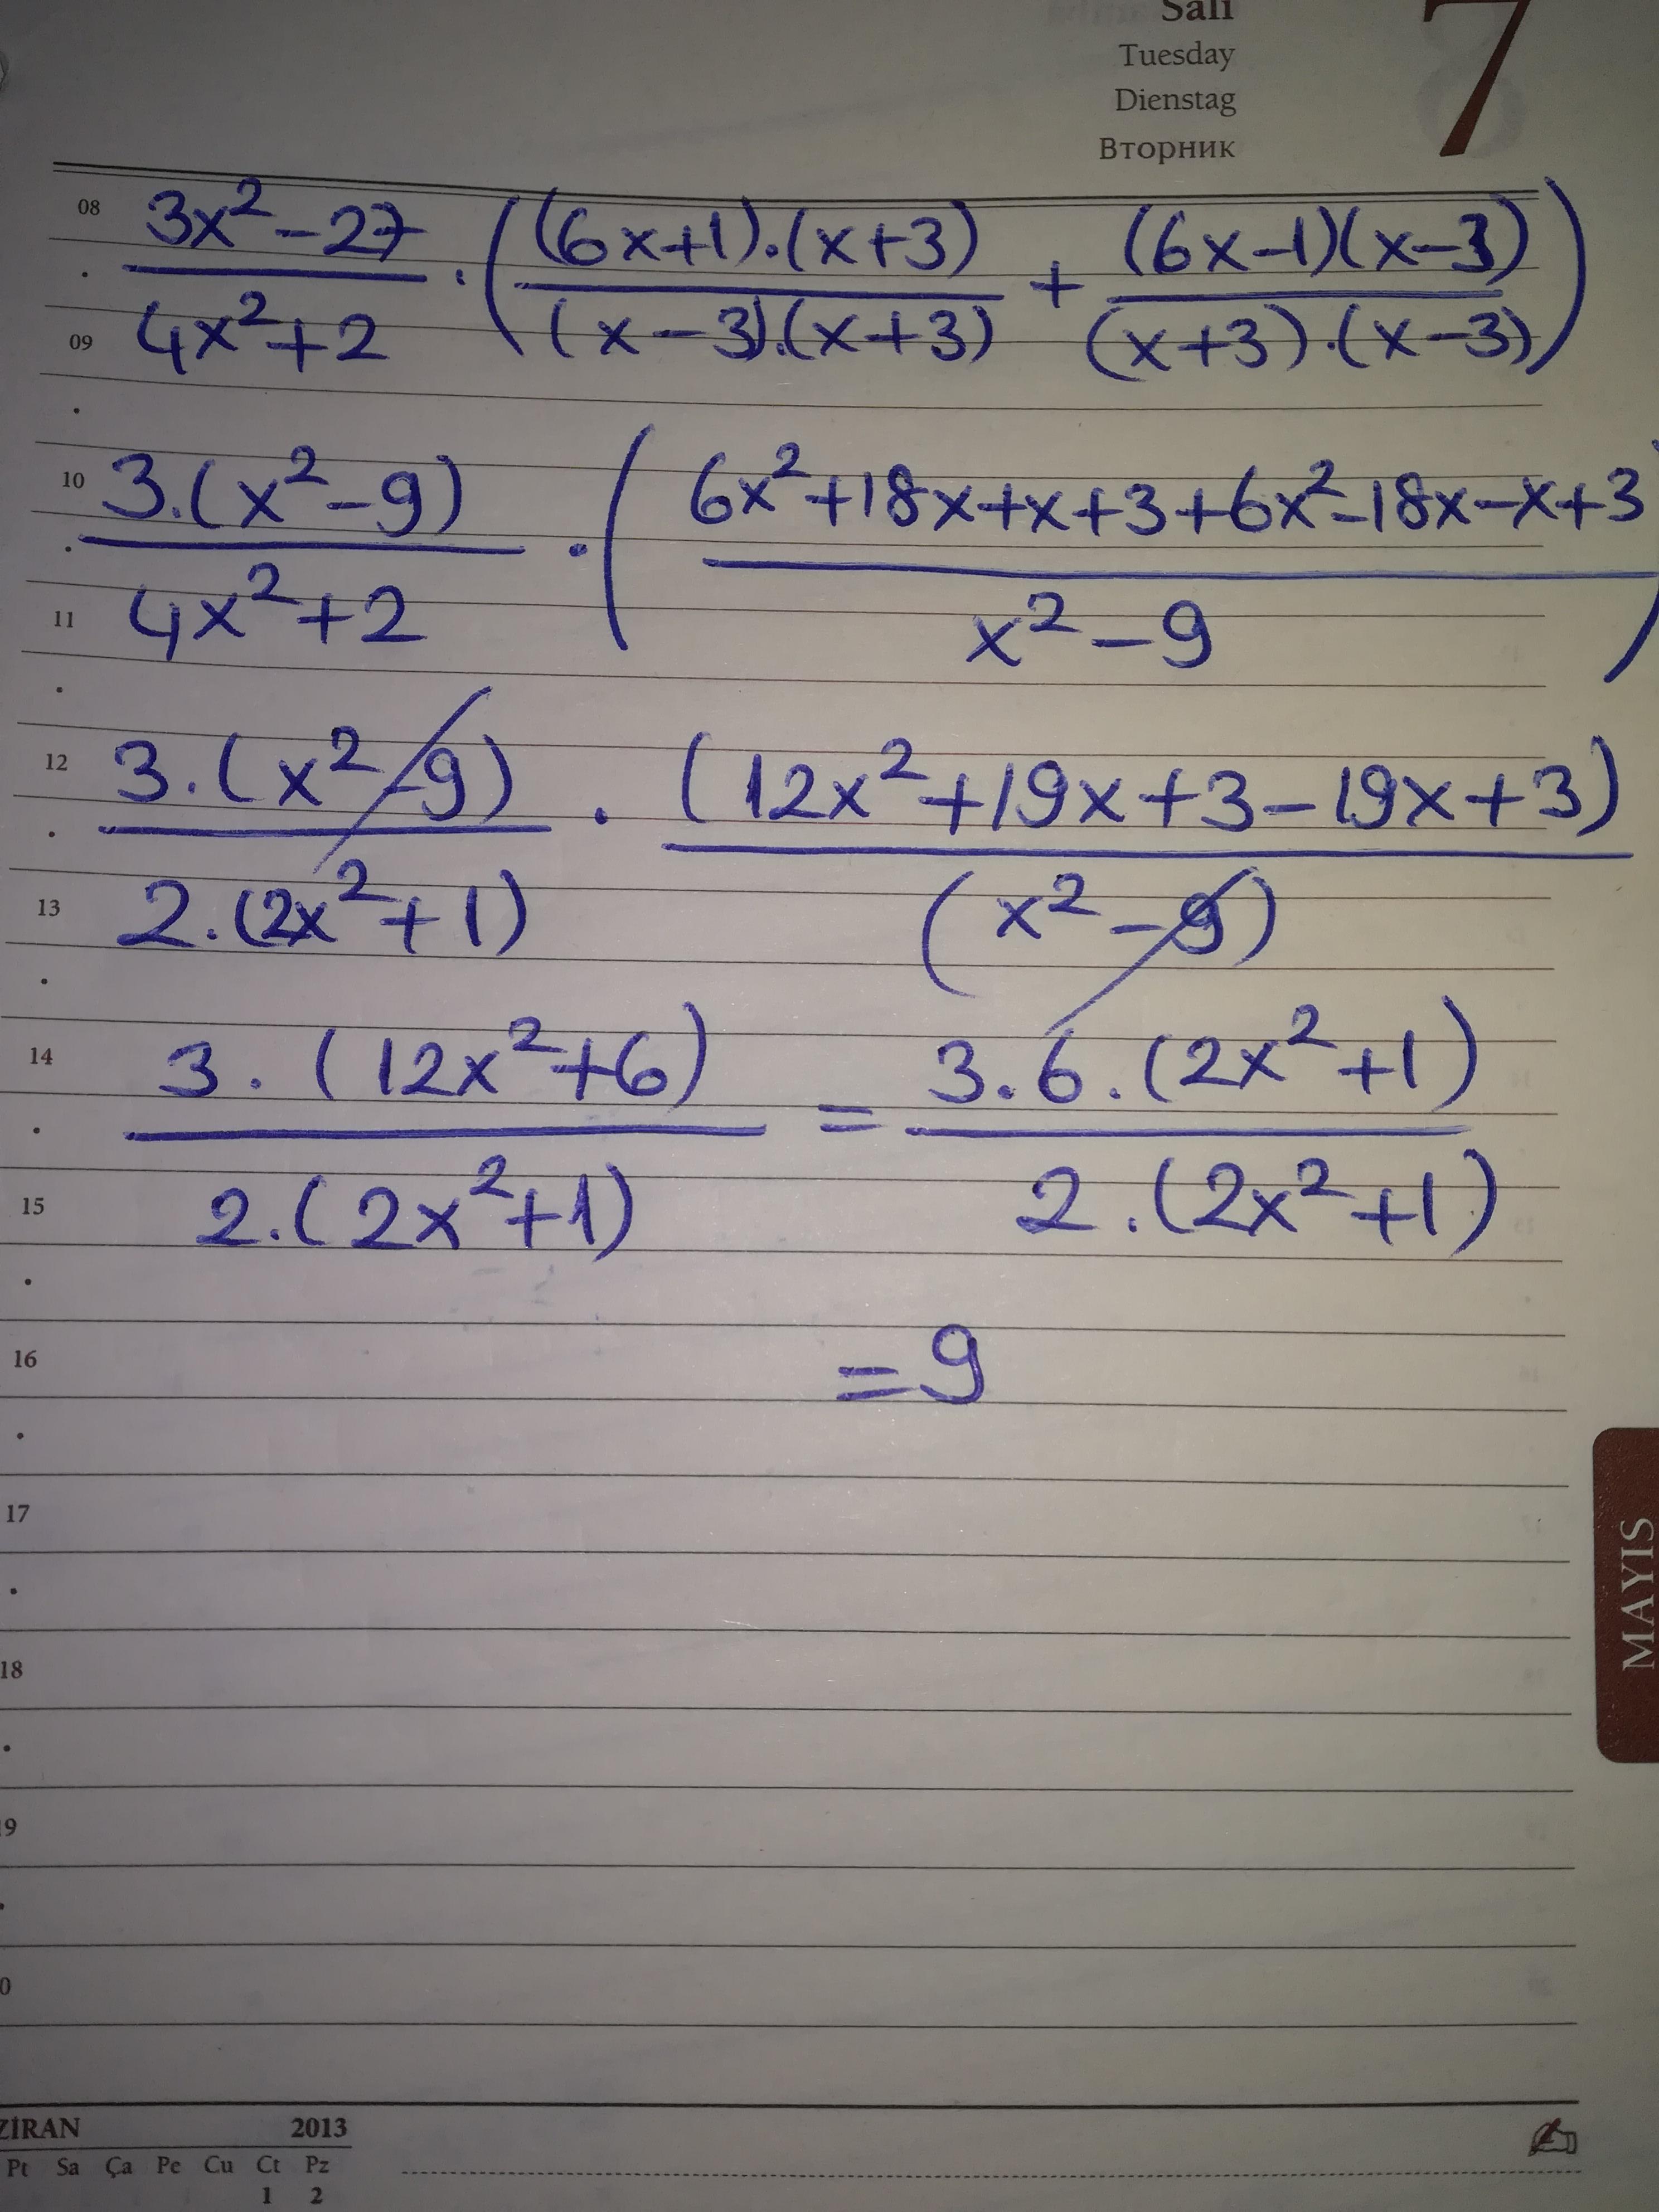 Salı
Tuesday
Dienstag
Вторник
7
08
(3x² - 27)/(4x² + 2) . ( ((6x+1).(x+3))/((x-3).(x+3)) + ((6x-1)(x-3))/((x+3).(x-3)) )
09
10
(3.(x²-9))/(4x²+2) . ( (6x²+18x+x+3+6x²-18x-x+3)/(x²-9) )
11
12
(3.(x²-9))/(2.(2x²+1)) . (12x²+19x+3-19x+3)/(x²-9)
13
14
(3.(12x²+6))/(2.(2x²+1)) = (3.6.(2x²+1))/(2.(2x²+1))
15
16
= 9
17
18
19
0
MAYIS
ZİRAN 2013
Pt Sa Ça Pe Cu Ct Pz
1 2